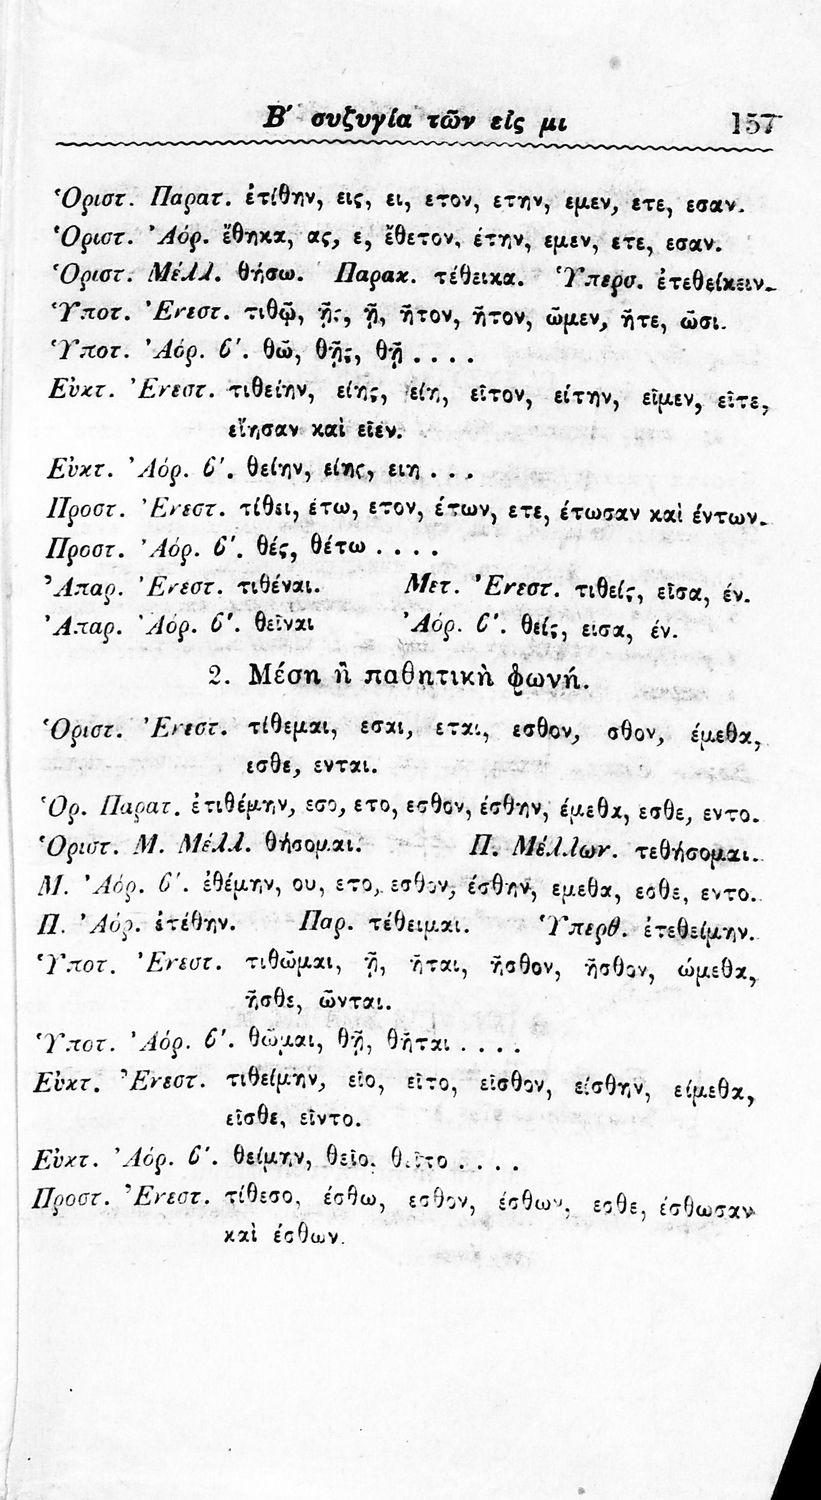 Β´ συζυγία τῶν εἰς μι 157
Ὁριστ. Παρατ. ἐτίθην, εις, ει, ετον, ετην, εμεν, ετε, εσαν.
Ὁριστ. Ἀόρ. ἔθηκα, ας, ε, ἔθετον, έτην, εμεν, ετε, εσαν.
Ὁριστ. Μέλλ. θήσω. Παρακ. τέθεικα. Ὑπερσ. ἐτεθείκειν.
Ὑποτ. Ἐνεστ. τιθῶ, ῇς, ῇ, ῆτον, ῆτον, ῶμεν, ῆτε, ῶσι.
Ὑποτ. Ἀόρ. β´. θῶ, θῇς, θῇ ....
Εὐκτ. Ἐνεστ. τιθείην, είης, είη, εῖτον, είτην, εῖμεν, εῖτε,
είησαν καὶ εῖεν.
Εὐκτ. Ἀόρ. β´. θείην, είης, ειη ...
Προστ. Ἐνεστ. τίθει, έτω, ετον, έτων, ετε, έτωσαν καὶ έντων.
Προστ. Ἀόρ. β´. θές, θέτω ....
Ἀπαρ. Ἐνεστ. τιθέναι. Μετ. Ἐνεστ. τιθείς, εῖσα, έν.
Ἀπαρ. Ἀόρ. β´. θεῖναι Ἀόρ. β´. θείς, εισα, έν.
2. Μέση ἢ παθητικὴ φωνή.
Ὁριστ. Ἐνεστ. τίθεμαι, εσαι, εται, εσθον, σθον, έμεθα,
εσθε, ενται.
Ὁρ. Παρατ. ἐτιθέμην, εσο, ετο, εσθον, έσθην, έμεθα, εσθε, εντο.
Ὁριστ. Μ. Μέλλ. θήσομαι. Π. Μέλλων. τεθήσομαι.
Μ. Ἀόρ. β´. ἐθέμην, ου, ετο, εσθον, έσθην, εμεθα, εσθε, εντο.
Π. Ἀόρ. ἐτέθην. Παρ. τέθειμαι. Ὑπερθ. ἐτεθείμην.
Ὑποτ. Ἐνεστ. τιθῶμαι, ῇ, ῆται, ῆσθον, ῆσθον, ώμεθα,
ῆσθε, ῶνται.
Ὑποτ. Ἀόρ. β´. θῶμαι, θῇ, θῆται ....
Εὐκτ. Ἐνεστ. τιθείμην, εῖο, εῖτο, εῖσθον, είσθην, είμεθα,
εῖσθε, εῖντο.
Εὐκτ. Ἀόρ. β´. θείμην, θεῖο, θεῖτο ....
Προστ. Ἐνεστ. τίθεσο, έσθω, εσθον, έσθων, εσθε, έσθωσαν
καὶ έσθων.